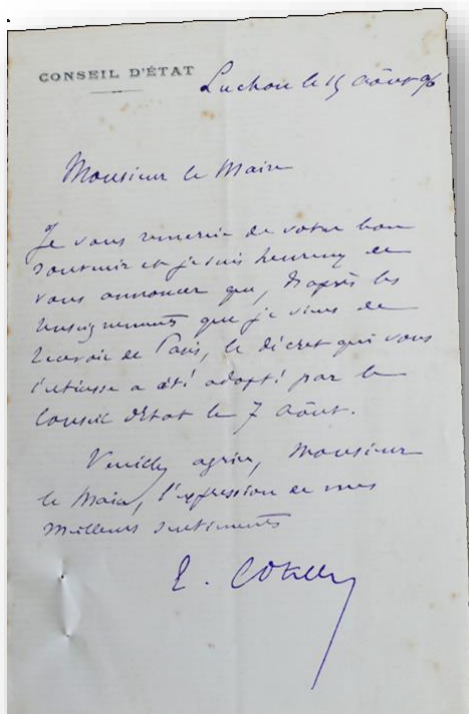 CONSEIL D'ÉTAT
Luchon le 15 Août 96
Monsieur le Maire
Je vous remercie de votre bon
souvenir et je suis heureux de
vous annoncer que, d'après les
renseignements que je viens de
recevoir de Paris, le décret qui vous
intéresse a été adopté par le
Conseil d'Etat le 7 Août.
Veuillez agréer, Monsieur
le Maire, l'expression de mes
meilleurs sentiments
E.